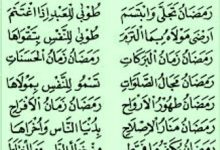 رَمَضَانُ تَجَلَّى وَابْتَسَمَ طُوبَى لِلْعَبْدِ إِذَا اغْتَنَمَ
أَرْضَى مَوْلَاهُ بِمَا الْتَزَمَ طُوبَى لِلنَّفْسِ بِتَقْوَاهَا
رَمَضَانُ زَمَانُ الْبَرَكَاتِ رَمَضَانُ زَمَانُ الْحَسَنَاتِ
رَمَضَانُ مَجَالُ الصَّلَوَاتِ تَسْمُو لِلنَّفْسِ بِمَوْلَاهَا
رَمَضَانُ طَهُورُ الْأَرْوَاحِ رَمَضَانُ زَمَانُ الْأَفْرَاحِ
رَمَضَانُ مَنَارُ الْإِصْلَاحِ بِدُنْيَا النَّاسِ وَأُخْرَاهَا